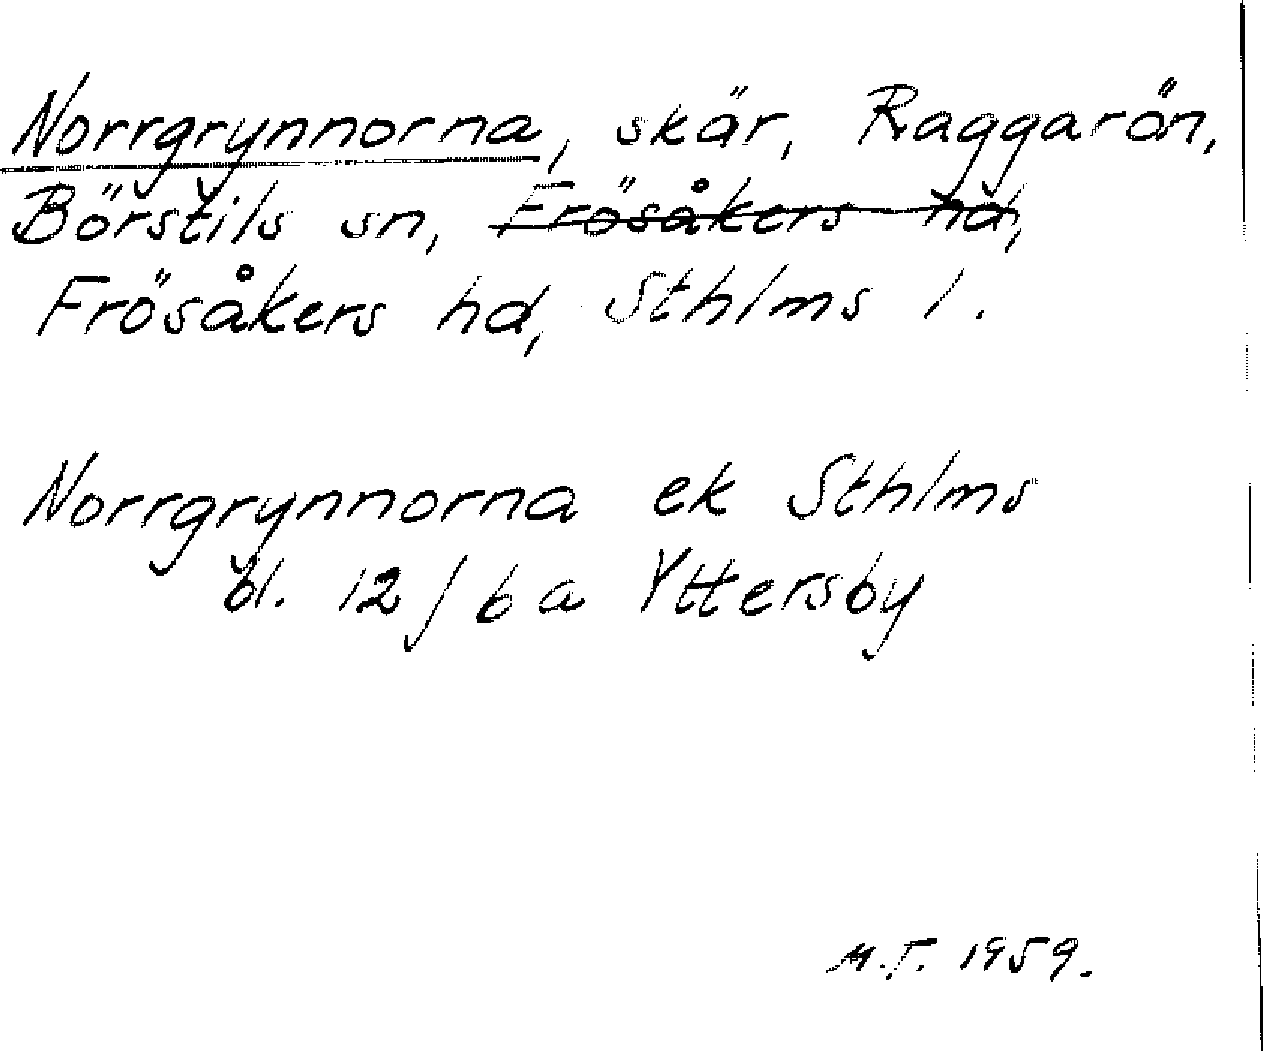 Norrgrynnorna, skär, Raggarön,
Börstils sn, Frösåkers hd,
Frösåkers hd, Sthlms l.
Norrgrynnorna ek Sthlms
bl. 12/6a Yttersby
M.T. 1959.